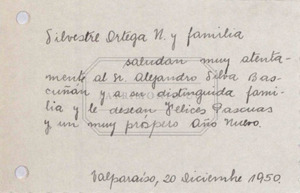 Silvestre Ortega N. y familia
saludan muy atenta-
mente al Sr. Alejandro Silva Bas-
cuñán y a su distinguida fami-
lia y le desean Felices Pascuas
y un muy próspero año nuevo.
Valparaíso, 20 Diciembre 1950.